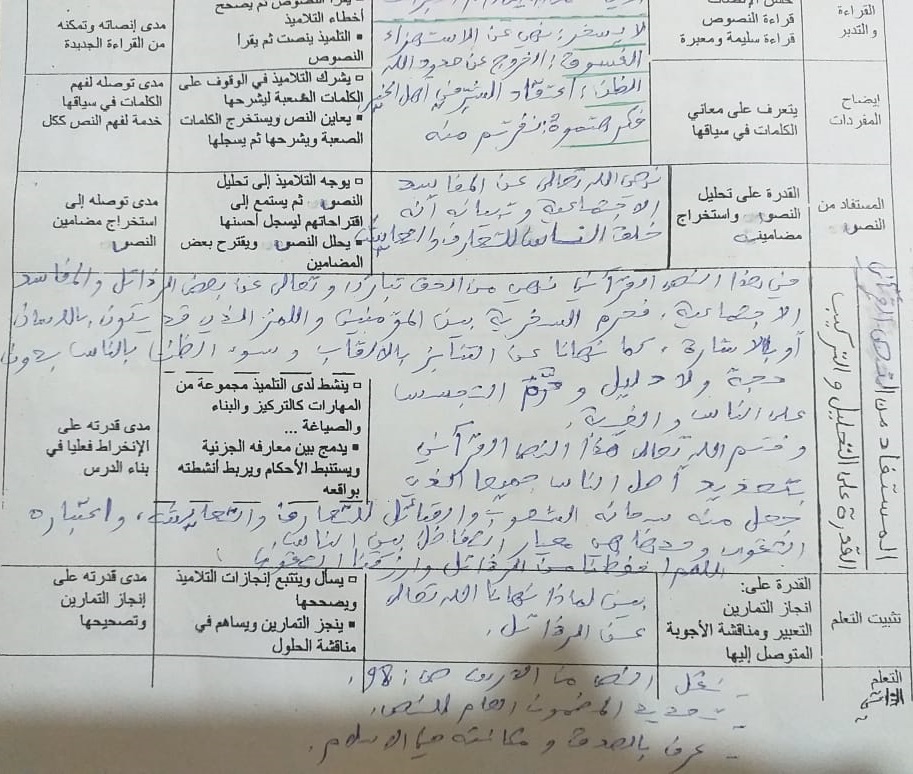 القراءة
والتدبر
قراءة النصوص
قراءة سليمة ومعبرة
لا يسخر: نهي عن الاستهزاء
الفسوق: الخروج عن حدود الله
أخطاء التلاميذ
▪ التلميذ ينصت ثم يقرأ
النصوص
مدى إنصاته وتمكنه
من القراءة الجديدة
إيضاح
المفردات
يتعرف على معاني
الكلمات في سياقها
الظن: اعتقاد الشر في أهل الخير
منه
▫ يشرك التلاميذ في الوقوف على
الكلمات الصعبة ليشرحها
▪ يعاين النص ويستخرج الكلمات
الصعبة ويشرحها ثم يسجلها
مدى توصله لفهم
الكلمات في سياقها
خدمة لفهم النص ككل
المستفاد من
النص
القدرة على تحليل
النص واستخراج
مضامينه
نهى الله تعالى عن المفاسد
الاجتماعية وتبيانه أنه
خلق الناس للتعارف والتعايش
▫ يوجه التلاميذ إلى تحليل
النص ثم يستمع إلى
اقتراحاتهم ليسجل أحسنها
▪ يحلل النص ويقترح بعض
المضامين
مدى توصله إلى
استخراج مضامين
النص
المستفاد من النص القرآني
القدرة على التحليل والتركيب
في هذا النص القرآني نهي من الحق تبارك وتعالى عن بعض الرذائل والمفاسد
الاجتماعية، فحرم السخرية بين المؤمنين واللمز الذي قد يكون باللسان
أو بالإشارة، كما نهانا عن التنابز بالألقاب وسوء الظن بالناس بدون
حجة ولا دليل وحرّم التجسس
على الناس والغيبة.
وختم الله تعالى هذا النص القرآني
أصل الناس جميعا
جعل منه سبحانه الشعوب والقبائل للتعارف والتعايش، واعتباره
التقوى وحدها هي معيار التفاضل بين الناس.
اللهم احفظنا من الرذائل وارزقنا التقوى
▫ ينشط لدى التلميذ مجموعة من
المهارات كالتركيز والبناء
والصياغة ...
▪ يدمج بين معارفه الجزئية
ويستنبط الأحكام ويربط أنشطته
بواقعه
مدى قدرته على
الإنخراط فعليا في
بناء الدرس
تثبيت التعلم
القدرة على:
انجاز التمارين
التعبير ومناقشة الأجوبة
المتوصل إليها
بين لماذا نهانا الله تعالى
عن الرذائل.
▫ يسأل ويتتبع إنجازات التلاميذ
ويصححها
▪ ينجز التمارين ويساهم في
مناقشة الحلول
مدى قدرته على
إنجاز التمارين
وتصحيحها
التعلم
- نقل النص ص: 98.
- تحديد المضمون العام للنص.
- عرف بالصدق و مكانته في الإسلام.